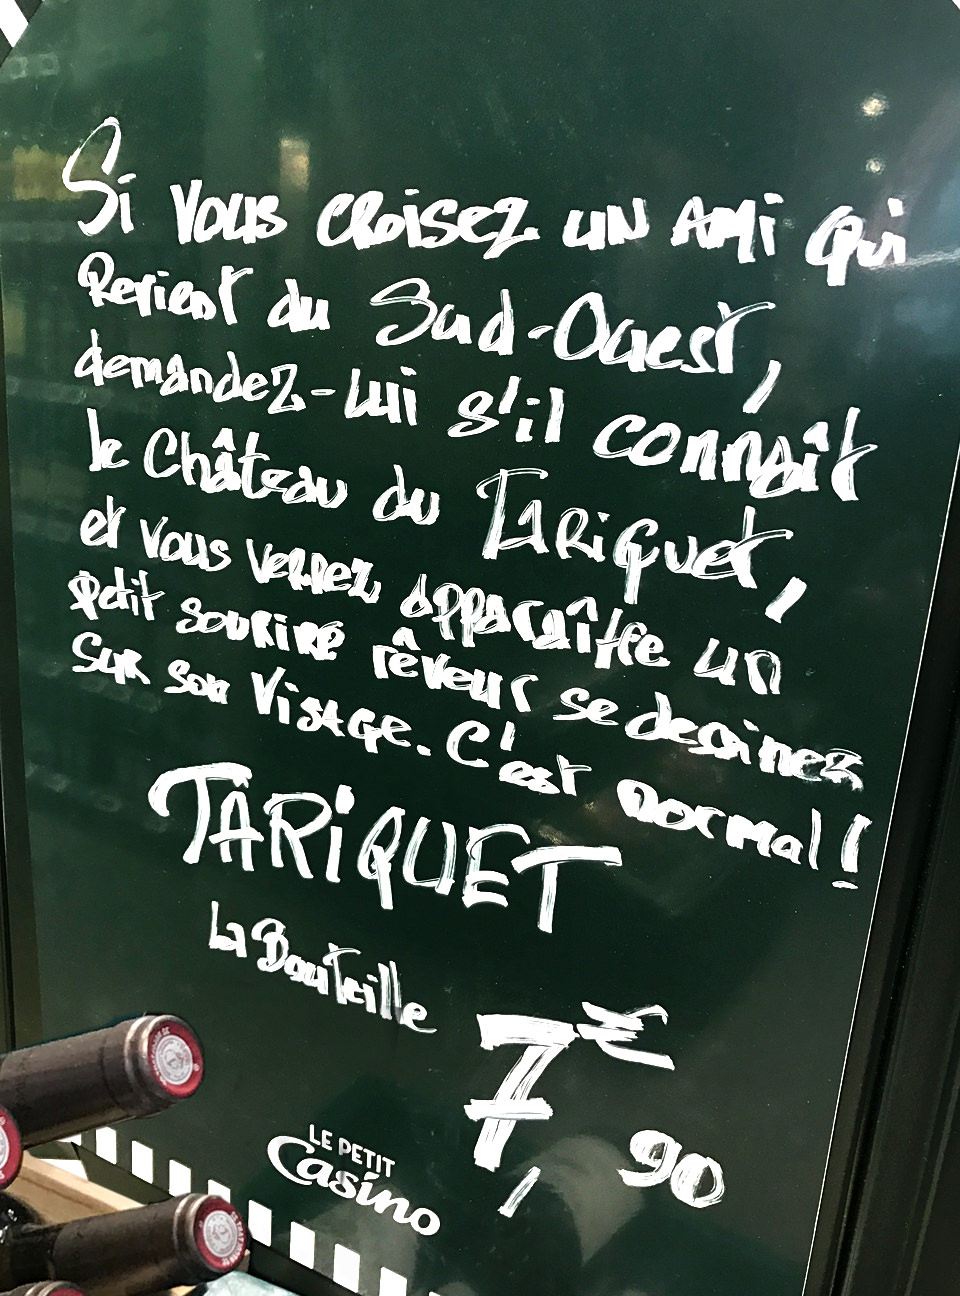 Si vous croisez un ami qui
Revient du Sud-Ouest,
demandez-lui s'il connaît
le Château du Tariquet,
et vous verrez apparaître un
petit sourire rêveur se dessiner
sur son visage. C'est normal !
TARIQUET
La Bouteille
7,€90
LE PETIT
Casino